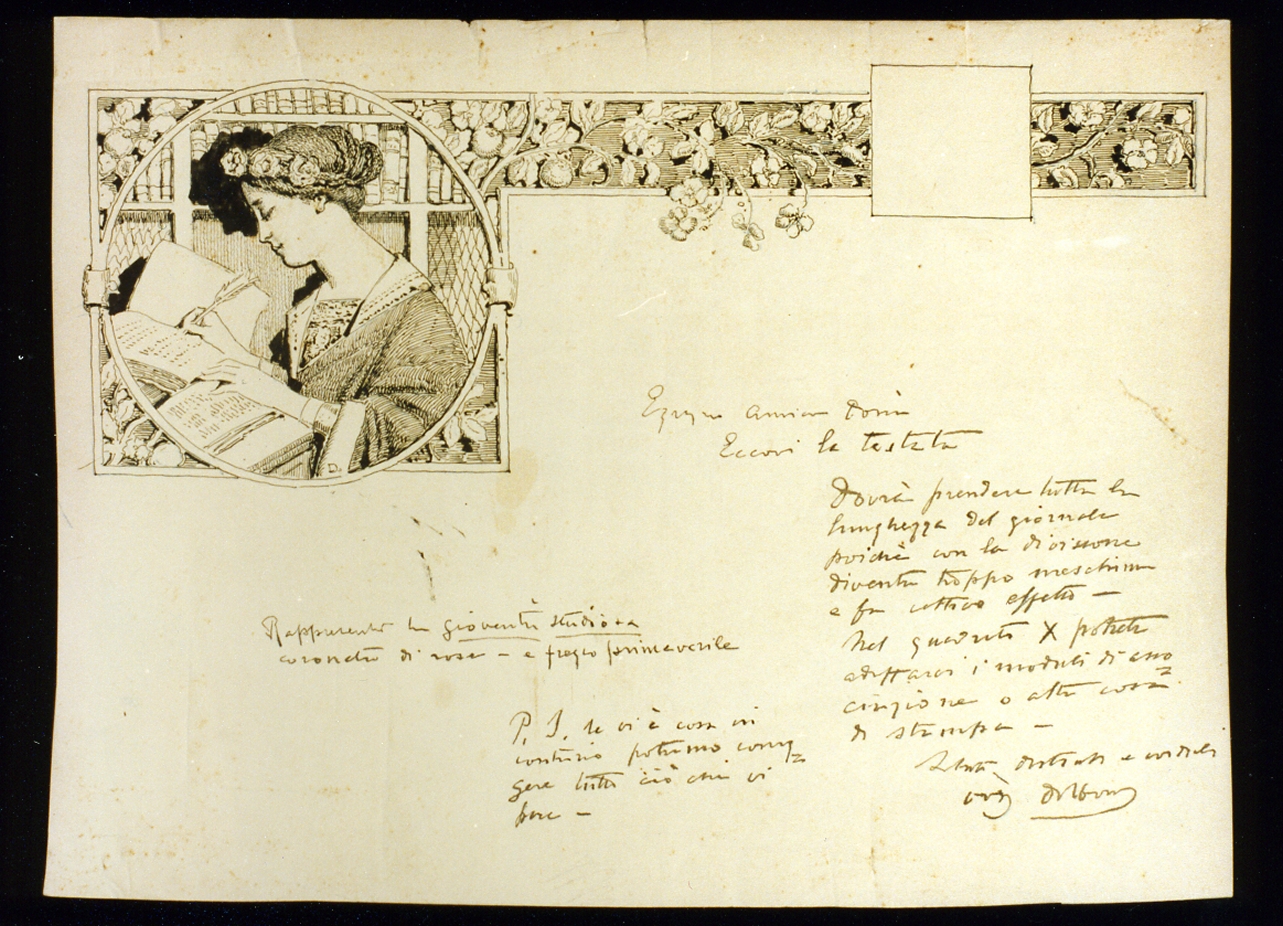 Egregio Amico Dorin
Eccovi la testata
Dovrà prendere tutta la
lunghezza del giornale
poichè con la divisione
diventa troppo meschina
e fa cattivo effetto —
Nel quadrato X potrete
adattarci i moduli di asso
ciazione o altra cosa
di stampa —
Saluti distinti e cordiali
Rappresenta la gioventù studiosa
coronata di rose — e fregio primaverile
P. S. Se vi è cosa in
contrario potremo correg
gere tutto ciò che vi
pare —
D.